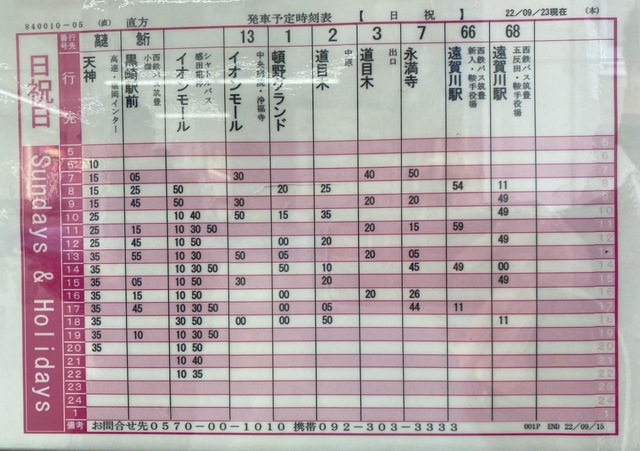 840010-05 (直) 直方 発車予定時刻表 【 日 祝 】 22/09/23現在 (本)
番号 行先 高速 新 13 1 2 3 7 66 68
日祝日 行先
天神 高速・福岡インター
黒崎駅前 西鉄バス筑豊
イオンモール シャトルバス 感田花ノ木
イオンモール 中央病院・浄福寺
頓野グランド
道目木 中原
道目木 出口
永満寺
遠賀川駅 西鉄バス筑豊 新入・鞍手役場
遠賀川駅 西鉄バス筑豊 五反田・鞍手役場
Sundays & Holidays
5
6 10
7 15 05 30 40 50
8 15 25 50 20 25 54 11
9 15 45 50 30 20 20 49
10 25 10 40 50 15 35 49
11 25 15 10 30 50 20 15 59
12 25 45 10 50 00 20 49
13 35 55 10 30 50 05 20 05
14 35 10 30 50 50 10 45 49 00
15 35 05 10 50 30 20 49
16 35 15 10 50 00 20 26
17 35 45 10 30 50 00 05 44 11
18 35 30 50 00 00 50 11
19 35 10 10 30 50
20 35 10 50
21 10 40
22 10 35
23
24
1
備考 お問合せ先0570-00-1010 携帯092-303-3333 001P END 22/09/15